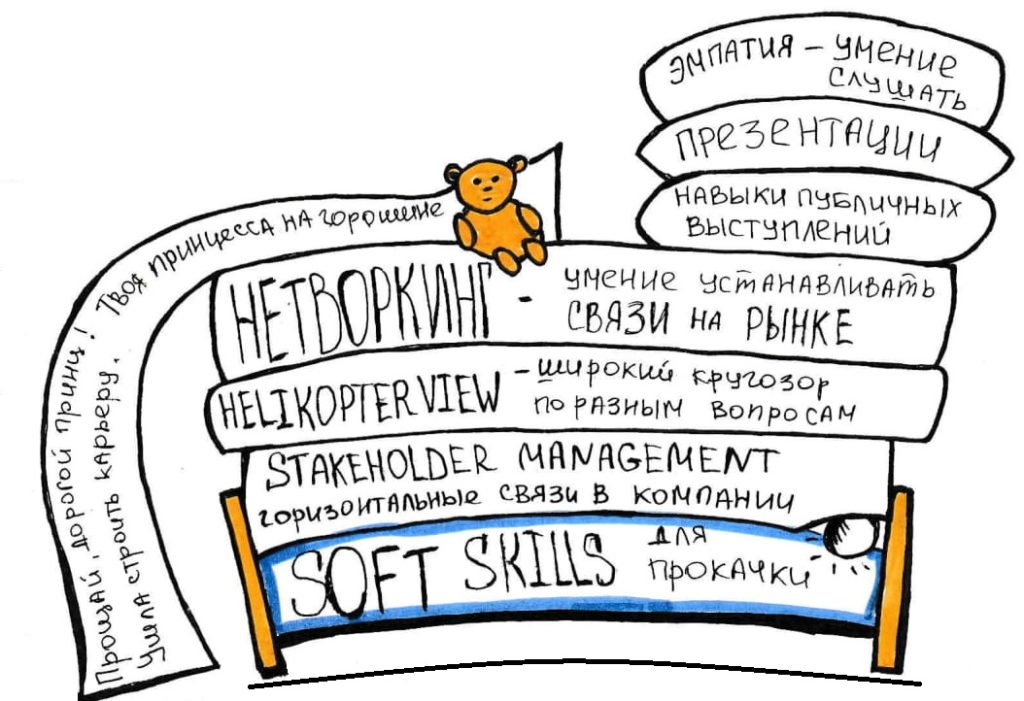 ЭМПАТИЯ – УМЕНИЕ
СЛУШАТЬ
ПРЕЗЕНТАЦИИ
НАВЫКИ ПУБЛИЧНЫХ
ВЫСТУПЛЕНИЙ
Прощай, дорогой принц! Твоя принцесса на горошине
Ушла строить карьеру.
НЕТВОРКИНГ - УМЕНИЕ УСТАНАВЛИВАТЬ
СВЯЗИ НА РЫНКЕ
HELIKOPTER VIEW – широкий кругозор
по разным вопросам
STAKEHOLDER MANAGEMENT
горизонтальные связи в компании
SOFT SKILLS для
прокачки